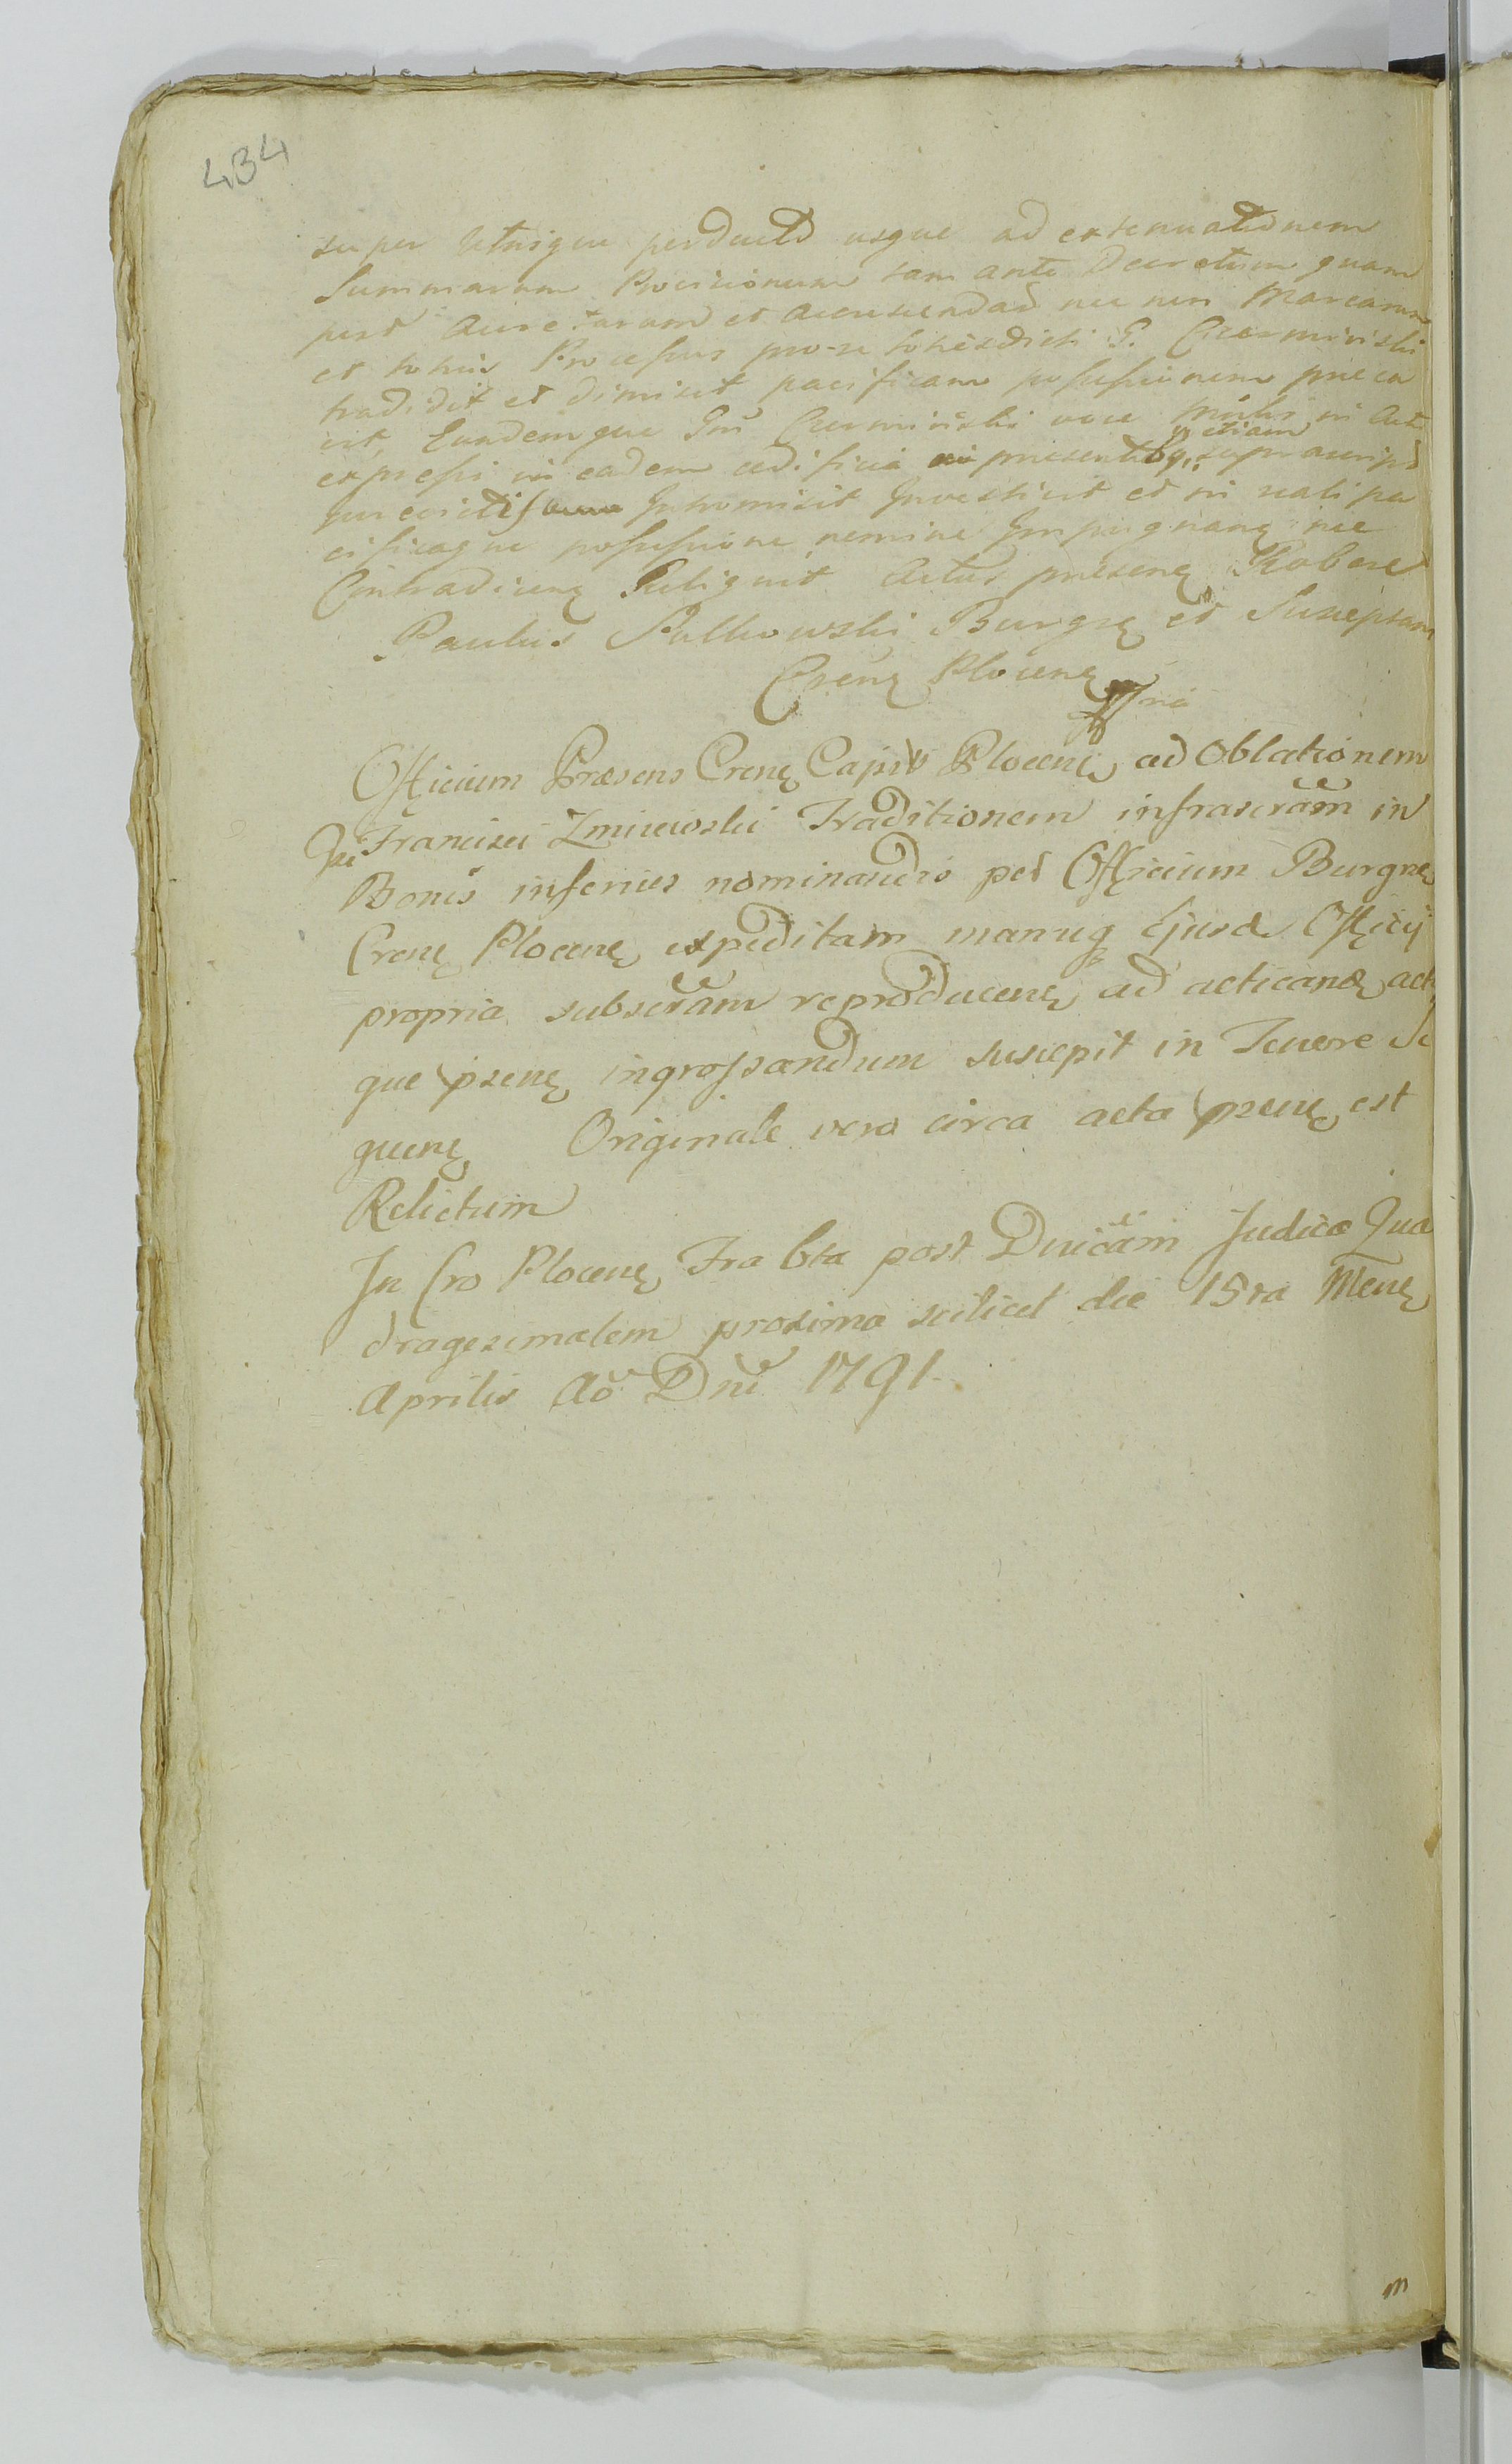 434
super utrisque perducto usque ad extenuationem
Summarum Provisionum tam ante Decretum quam
post accretarum et accrescendar nec non Marcarum
et totius Processus pro-se toties dicti G. Czerminski
tradidit et dimisit pacificam possessionem praeca
vit, Eundemque Gnū Czerminski voce in Act
expressi in eadem aedificia praesentibq, etiam suprascrip
Intromisit Investivit et in reali pa
cificaque possessione nemine Impugnanę nec
Contradicenę Reliquit Actus presenę Robore
Paulus Sulkowski Burgrę et Susceptans
Crenę Plocenę
Officium Præsens Crenę Capitł Plocenę ad Oblationem
Francisci Zmiiewski Traditionem infrascrām in
Bonis inferius nominandis per Officium Burgrę
Crenę Plocenę expeditam manuq Ejusd Officij
propria subscrām reproducenę ad acticandę act
que psenę ingrossandum suscepit in Tenore Se
quenę Originale vero circa acta psenę est
Relictum
In Cro Plocenę Fra 6ta post Dnicām Judica Qua
dragesimalem proxima scilicet die 15ta Menę
Aprilis Aō Dnī 1791.
m